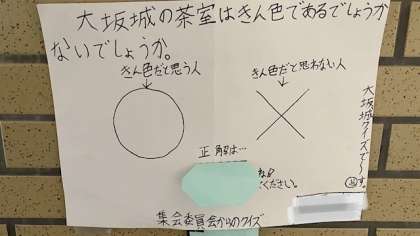 大坂城の茶室はきん色であるでしょうか
ないでしょうか。
きん色だと思う人
きん色だと思わない人
大坂城クイズで〜す。
正解は…
ください。
集会委員会からのクイズ